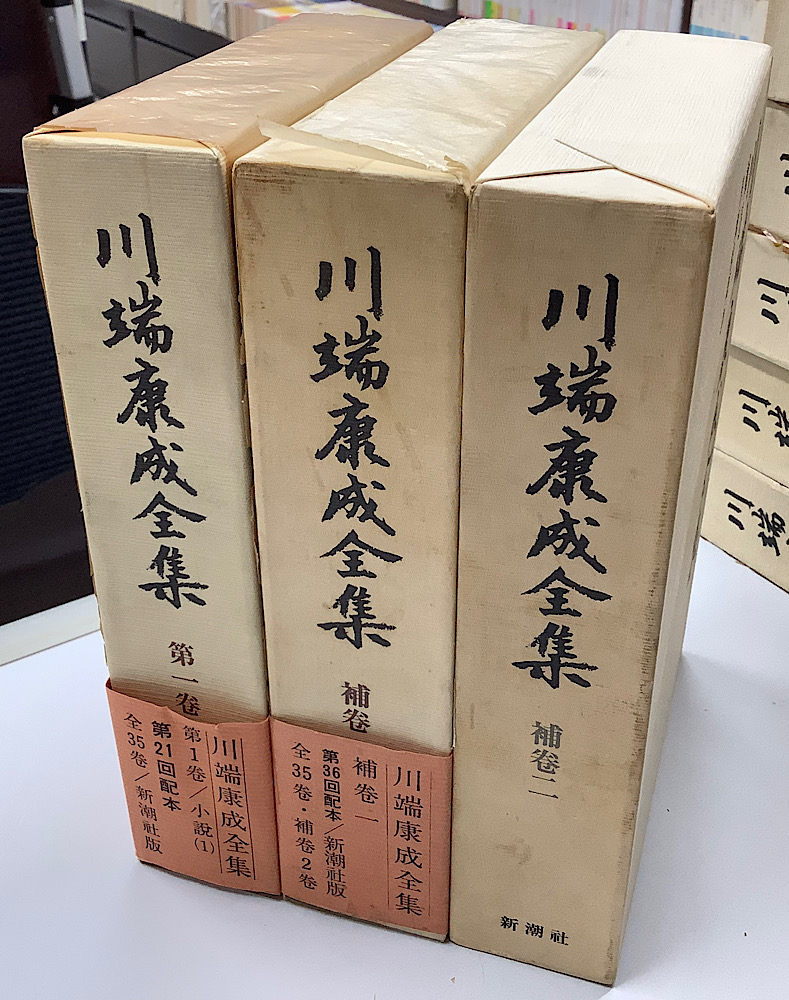 川端康成全集
第一巻
川端康成全集
第1巻/小説(1)
第21回配本
全35巻/新潮社版
川端康成全集
補巻
川端康成全集
補巻一
第36回配本/新潮社版
全35巻・補巻2巻
川端康成全集
補巻二
新潮社
川
川
川端
川端康